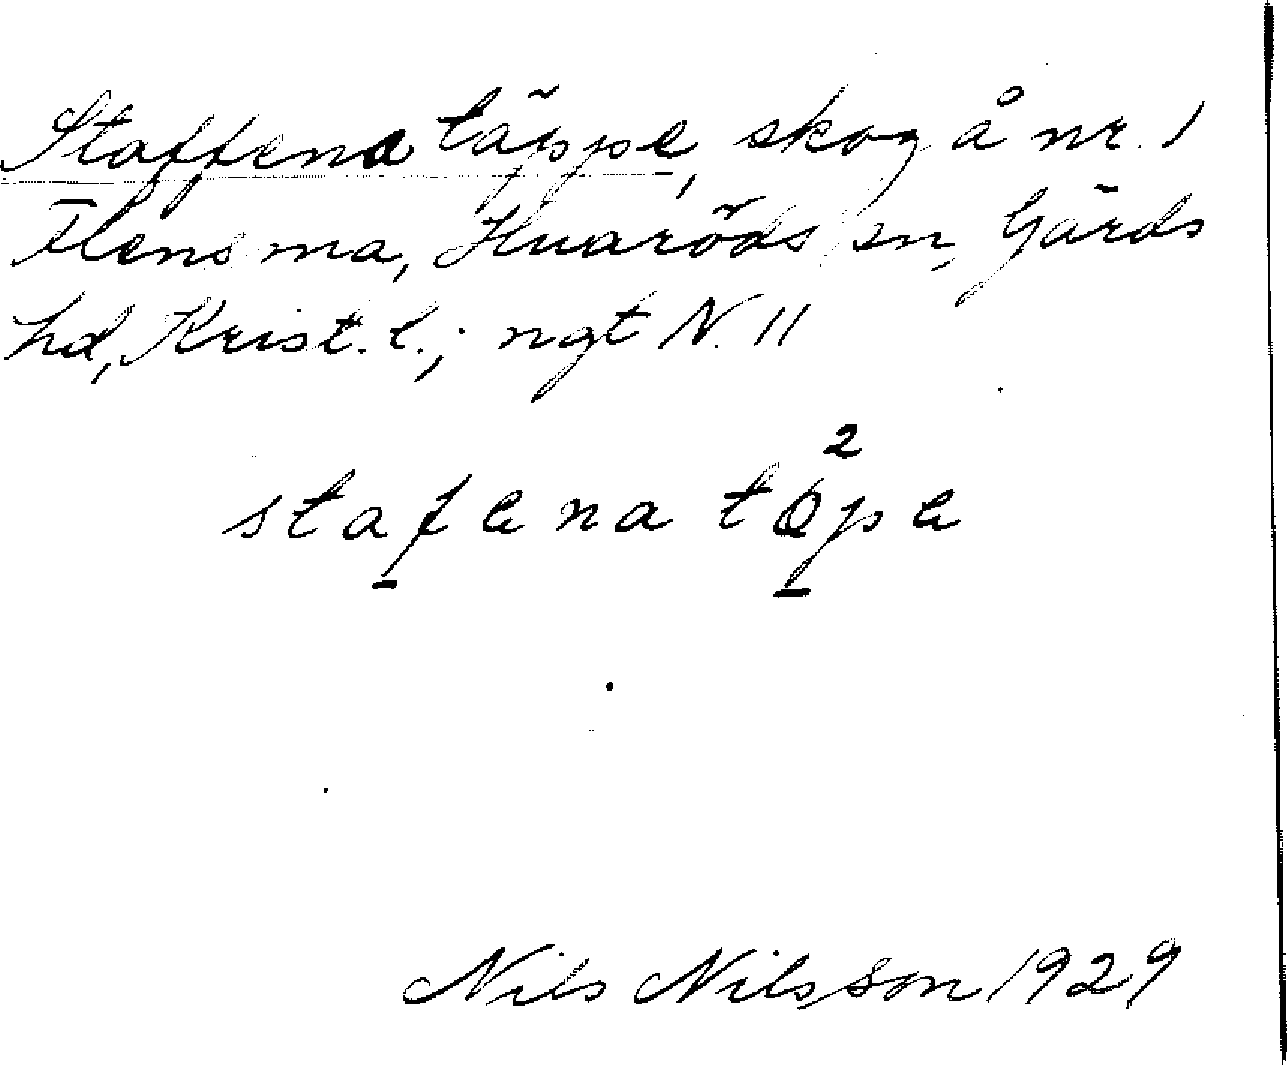 Staffena täppe, skog å nr. 1
Flensma, Huaröds sn, Gärds
hd, Krist. l.; ngt N. 11
2
stafena töpe
Nils Nilsson 1929